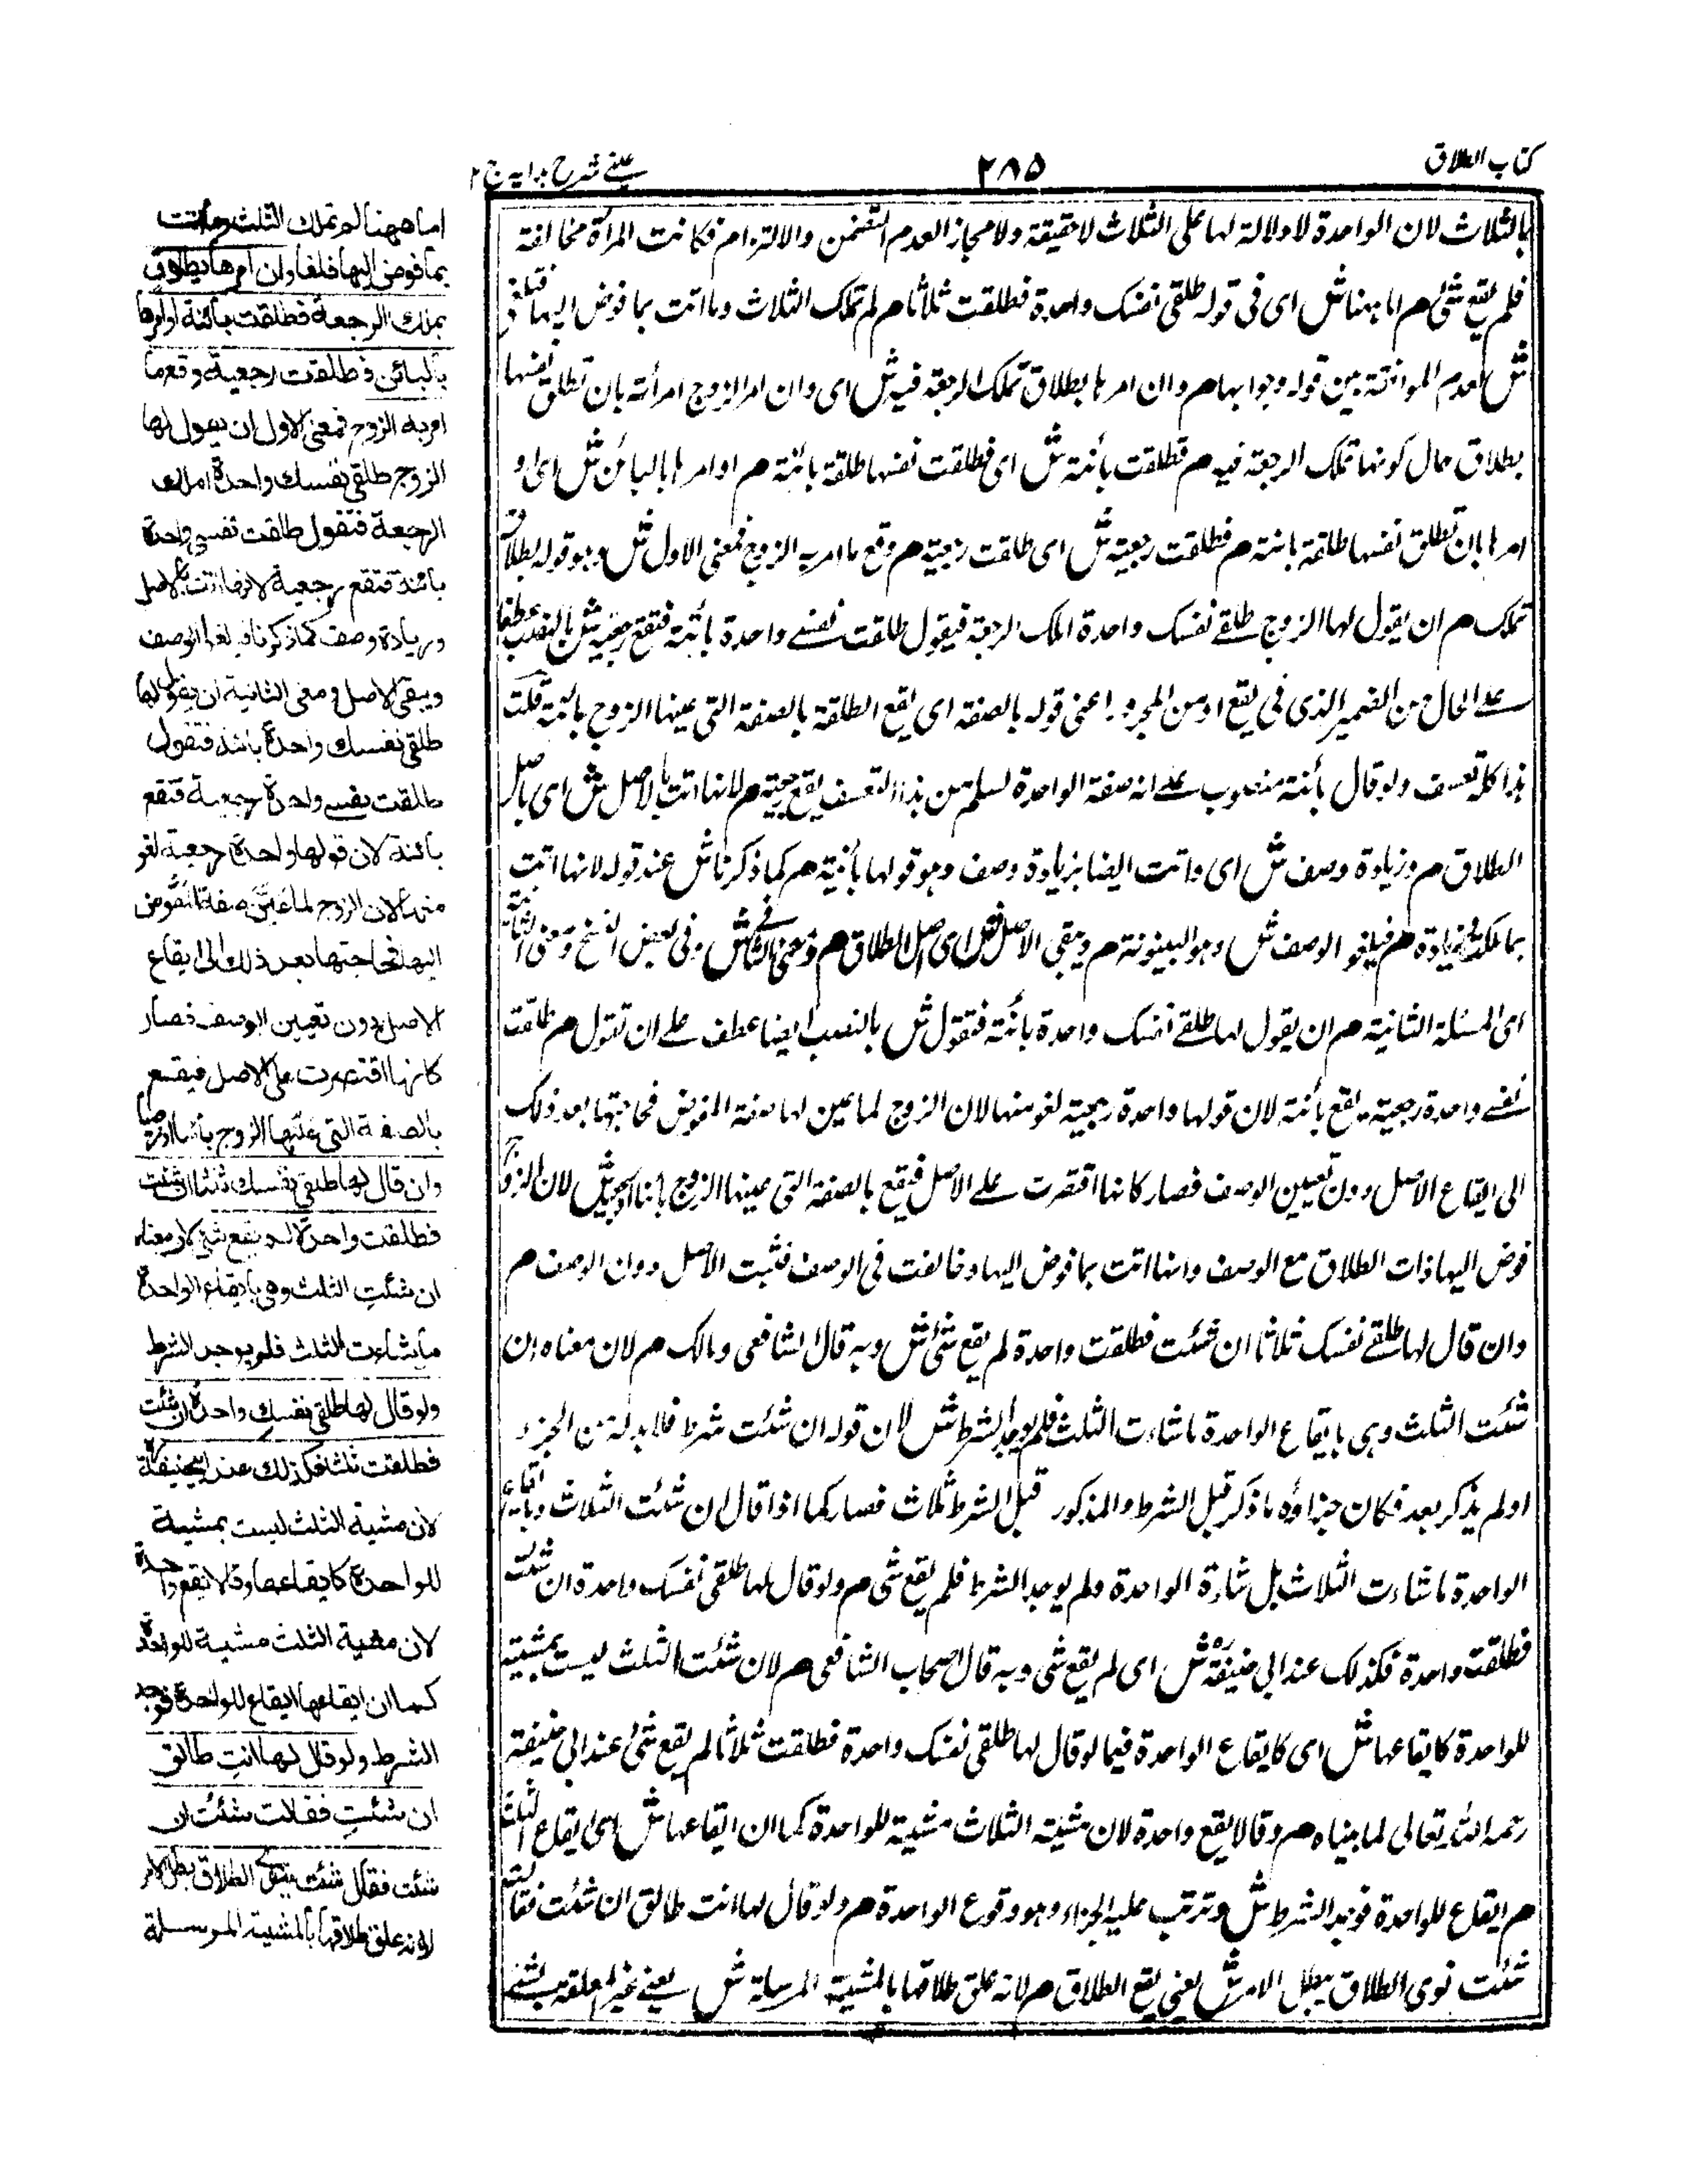 كتاب الطلاق
٢٨٥
عینے شرح ہدایہ ج ٢
بالثلاث لان الواحدة لا دلالة لها على الثلاث لا حقيقة ولا مجازا لعدم التضمن والالتزام فكانت المرأة مخالفة
فلم يقع شئ م اما ههنا ش اى فى قوله طلقى نفسك واحدة فطلقت ثلاثا م لم تملك الثلاث وما اتت بما فوض اليها فتلغو
ش لعدم الموافقة بين قوله وجوابها م وان امرها بطلاق تملك الرجعة فيه ش اى وان امر الزوج امرأته بان تطلق نفسها
بطلاق حال كونها تملك الرجعة فيه م فطلقت بائنة ش اى فطلقت نفسها طلقة بائنة م او امرها بالبائن ش اى او
امرها بان تطلق نفسها طلقة بائنة م فطلقت رجعية ش اى طلقت رجعية م وقع ما امر به الزوج فمعنى الاول ش وهو قوله بطلاق
تملك م ان يقول لها الزوج طلقے نفسك واحدة املك الرجعة فيقول طلقت نفسے واحدة بائنة فتقع رجعية ش بالنصب عطفا
علے الحال من الضمير الذى فى يقع او من المجرور اعنى قوله بالصفة اى يقع الطلقة بالصفة التى عينها الزوج بائنة قلت
هذا كله تعسف ولو قال بائنة منصوب علے انه صفة الواحدة لسلم من هذا التعسف يقع رجعية م لانها اتت بالاصل ش اى باصل
الطلاق م وزيادة وصف ش اى واتت ايضا بزيادة وصف وهو قولها بائنة م كما ذكرنا ش عند قوله لانها اتت
بما ملكت وزيادة م فيلغو الوصف ش وهو البينونة م ويبقى الاصل ش اى اصل الطلاق م ومعنى الثانى ش وفى بعض النسخ ومعنى الثانية
اى المسئلة الثانية م ان يقول لها طلقے نفسك واحدة بائنة فتقول ش بالنصب ايضا عطف علے ان تقول م طلقت
نفسے واحدة رجعية يقع بائنة لان قولها واحدة رجعية لغو منها لان الزوج لما عين لها صفة المفوض فحاجتها بعد ذلك
الى ايقاع الاصل دون تعيين الوصف فصار كانها اقتصرت علے الاصل فيقع بالصفة التى عينها الزوج بائنا او رجعيا ش لان الزوج
فوض اليها ذات الطلاق مع الوصف وانها اتت بما فوض اليها وخالفت فى الوصف فثبت الاصل دون الوصف م
وان قال لها طلقے نفسك ثلاثا ان شئت فطلقت واحدة لم يقع شئ ش وبه قال الشافعى ومالك م لان معناه ان
شئت الثلث وهى بايقاع الواحدة ما شاءت الثلث فلم يوجد الشرط ش لان قوله ان شئت شرط فلا بد له من الجزء
او لم يذكر بعد فكان جزاؤه ما ذكر قبل الشرط والمذكور قبل الشرط ثلاث فصار كما اذا قال ان شئت الثلاث وبايقاع
الواحدة ما شاءت الثلاث بل شاءة الواحدة ولم يوجد الشرط فلم يقع شى م ولو قال لها طلقى نفسك واحدة ان شئت
فطلقت واحدة فكذلك عند ابى حنيفة ش اى لم يقع شى وبه قال اصحاب الشافعى م لان شئت الثلث ليست بمشيته
للواحدة كايقاعها ش اى كايقاع الواحدة فيما لو قال لها طلقى نفسك واحدة فطلقت ثلاثا لم يقع شئ عند ابى حنيفة
رحمه الله تعالى لما بيناه م وقالا يقع واحدة لان مشيته الثلاث مشية للواحدة كما ان ايقاعها ش اى ايقاع الثلث
م ايقاع للواحدة فوجد الشرط ش وترتب عليه الجزاء وهو وقوع الواحدة م ولو قال لها انت طالق ان شئت فقالت
شئت نوى الطلاق يبطل الامر ش يعنى يقع الطلاق م لانه علق طلاقها بالمشية المرسلة ش يعنے غير المعلقة بشئے
اما ههنا لم تملك الثلث وما اتت
بما فوض اليها فلغا وان امرها بطلاق
يملك الرجعة فطلقت بائنة او امرها
بالبائن فطلقت رجعية وقع ما
امر به الزوج فمعنى الاول ان يقول لها
الزوج طلقى نفسك واحدة املك
الرجعة فتقول طلقت نفسى واحدة
بائنة فتقع رجعية لانها اتت بالاصل
وزيادة وصف كما ذكرنا فيلغو الوصف
ويبقى الاصل ومعنى الثانية ان يقول لها
طلقى نفسك واحدة بائنة فتقول
طلقت نفسى واحدة رجعية فتقع
بائنة لان قولها واحدة رجعية لغو
منها لان الزوج لما عين صفة المفوض
اليها فحاجتها بعد ذلك الى ايقاع
الاصل دون تعيين الوصف فصار
كانها اقتصرت على الاصل فيقع
بالصفة التى عينها الزوج بائنا او رجعيا
وان قال لها طلقى نفسك ثلثا ان شئت
فطلقت واحدة لم يقع شئ لان معناه
ان شئتِ الثلث وهى بايقاع الواحدة
ما شاءت الثلث فلم يوجد الشرط
ولو قال لها طلقى نفسكِ واحدة ان شئت
فطلقت ثلثا فكذلك عند ابى حنيفة
لان مشية الثلث ليست بمشية
للواحدة كايقاعها وقالا تقع واحدة
لان مشية الثلث مشية للواحدة
كما ان ايقاعها ايقاع للواحدة فوجد
الشرط ولو قال لها انتِ طالق
ان شئتِ فقالت شئتُ ان
شئت فقال شئت ينوى الطلاق بطل الامر
لانه علق طلاقها بالمشية المرسلة